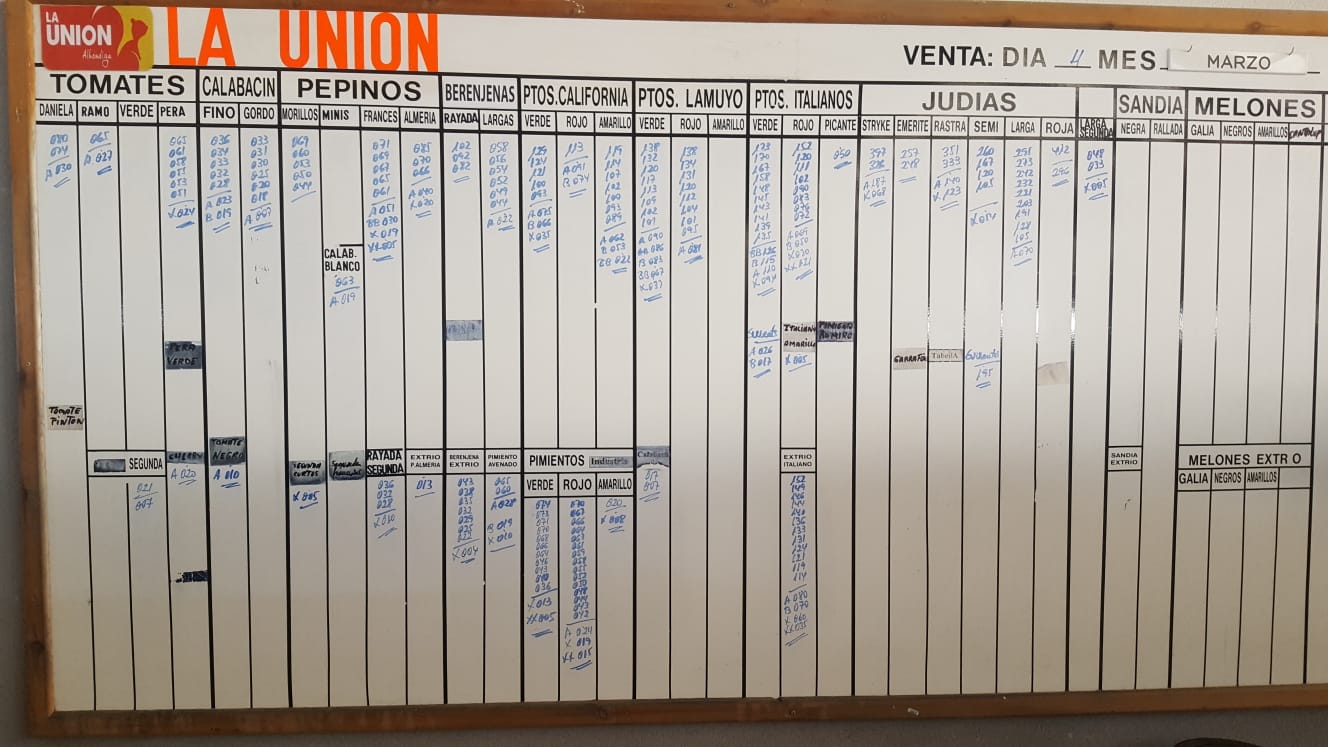 LA UNION Alhondiga
LA UNION
VENTA: DIA 4 MES MARZO
TOMATES CALABACIN PEPINOS BERENJENAS PTOS.CALIFORNIA PTOS. LAMUYO PTOS. ITALIANOS JUDIAS SANDIA MELONES
DANIELA RAMO VERDE PERA FINO GORDO MORILLOS MINIS FRANCES ALMERIA RAYADA LARGAS VERDE ROJO AMARILLO VERDE ROJO AMARILLO VERDE ROJO PICANTE STRYKE EMERITE RASTRA SEMI LARGA ROJA LARGA SEGUNDA NEGRA RALLADA GALIA NEGROS AMARILLOS
080
074
A 030
065
A 027
065
061
058
055
053
051
X 024
036
034
033
032
028
A 023
B 019
033
031
030
025
020
018
A 007
069
060
053
050
044
CALAB. BLANCO
063
A 019
071
069
067
065
061
A 051
BB 030
X 019
XX 005
085
070
066
A 040
X 020
102
092
072
058
056
054
052
049
044
A 032
129
124
121
100
093
A 075
B 066
X 035
113
A 091
B 074
119
114
107
102
100
093
089
A 062
B 053
BB 022
138
132
120
117
113
109
102
101
A 090
B 083
BB 067
X 037
138
134
131
120
112
104
101
095
A 081
173
170
167
158
148
145
143
141
139
135
BB 126
B 115
A 110
X 094
152
120
111
102
090
083
076
072
A 069
B 050
X 030
XX 021
050
397
326
A 187
X 068
257
248
351
333
A 140
X 123
260
167
120
105
X 054
291
273
242
232
221
203
191
128
105
A 070
412
296
048
033
X 005
PERA VERDE
A 026
B 017
ITALIANO AMARILLO
X 005
PIMIENTO ROMIRO
GARRAFON
TabellA
195
TOMATE PINTON
SEGUNDA
021
007
CHERRY
A 020
TOMATE NEGRO
A 010
SEGUNDA CORTOS
X 005
RAYADA SEGUNDA
036
032
028
X 010
EXTRIO P.ALMERIA
013
BERENJENA EXTRIO
043
038
035
032
029
025
022
X 004
PIMIENTO AVENADO
065
060
A 028
B 019
X 010
PIMIENTOS Industria
VERDE ROJO AMARILLO
074
073
071
070
068
066
064
046
043
040
036
X 013
XX 005
070
067
066
064
063
061
059
058
055
052
050
048
044
043
042
A 024
X 019
XX 015
020
X 008
017
007
EXTRIO ITALIANO
152
149
146
144
140
136
133
131
124
121
119
114
A 080
B 070
X 060
XX 035
SANDIA EXTRIO
MELONES EXTR O
GALIA NEGROS AMARILLOS